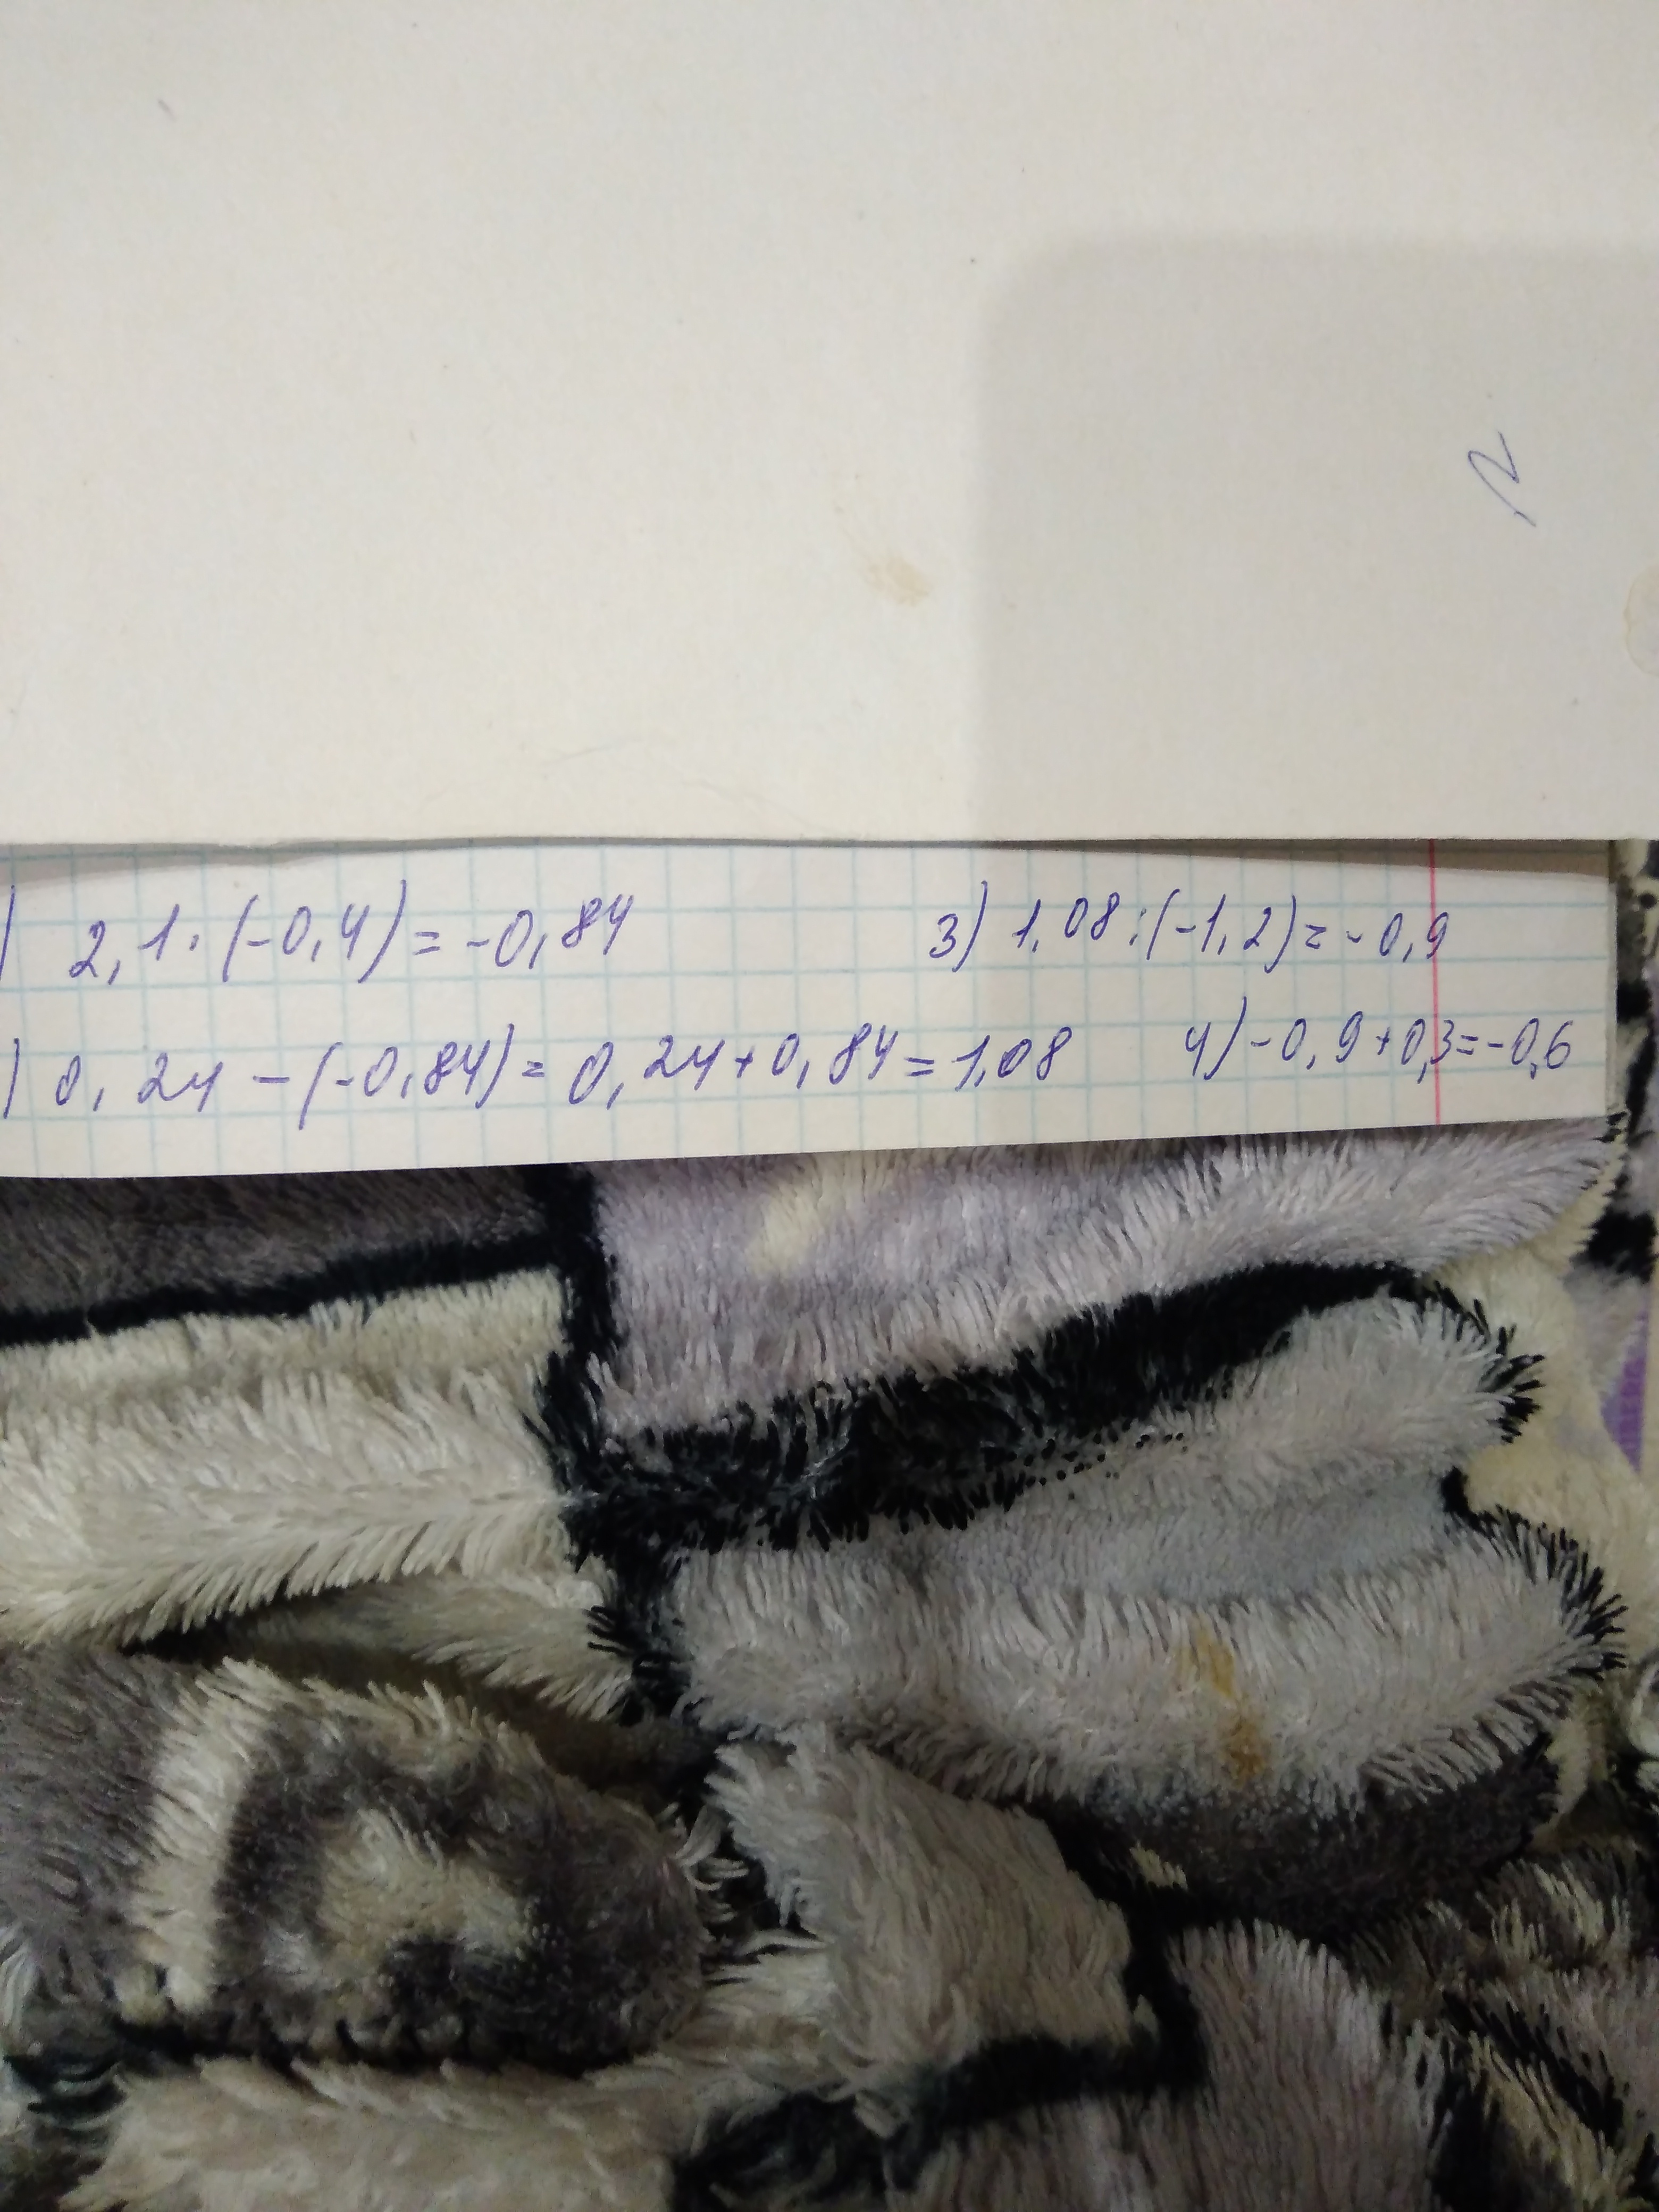 ) 2,1·(-0,4)=-0,84
3) 1,08:(-1,2)=-0,9
) 0,24-(-0,84)=0,24+0,84=1,08
4) -0,9+0,3=-0,6